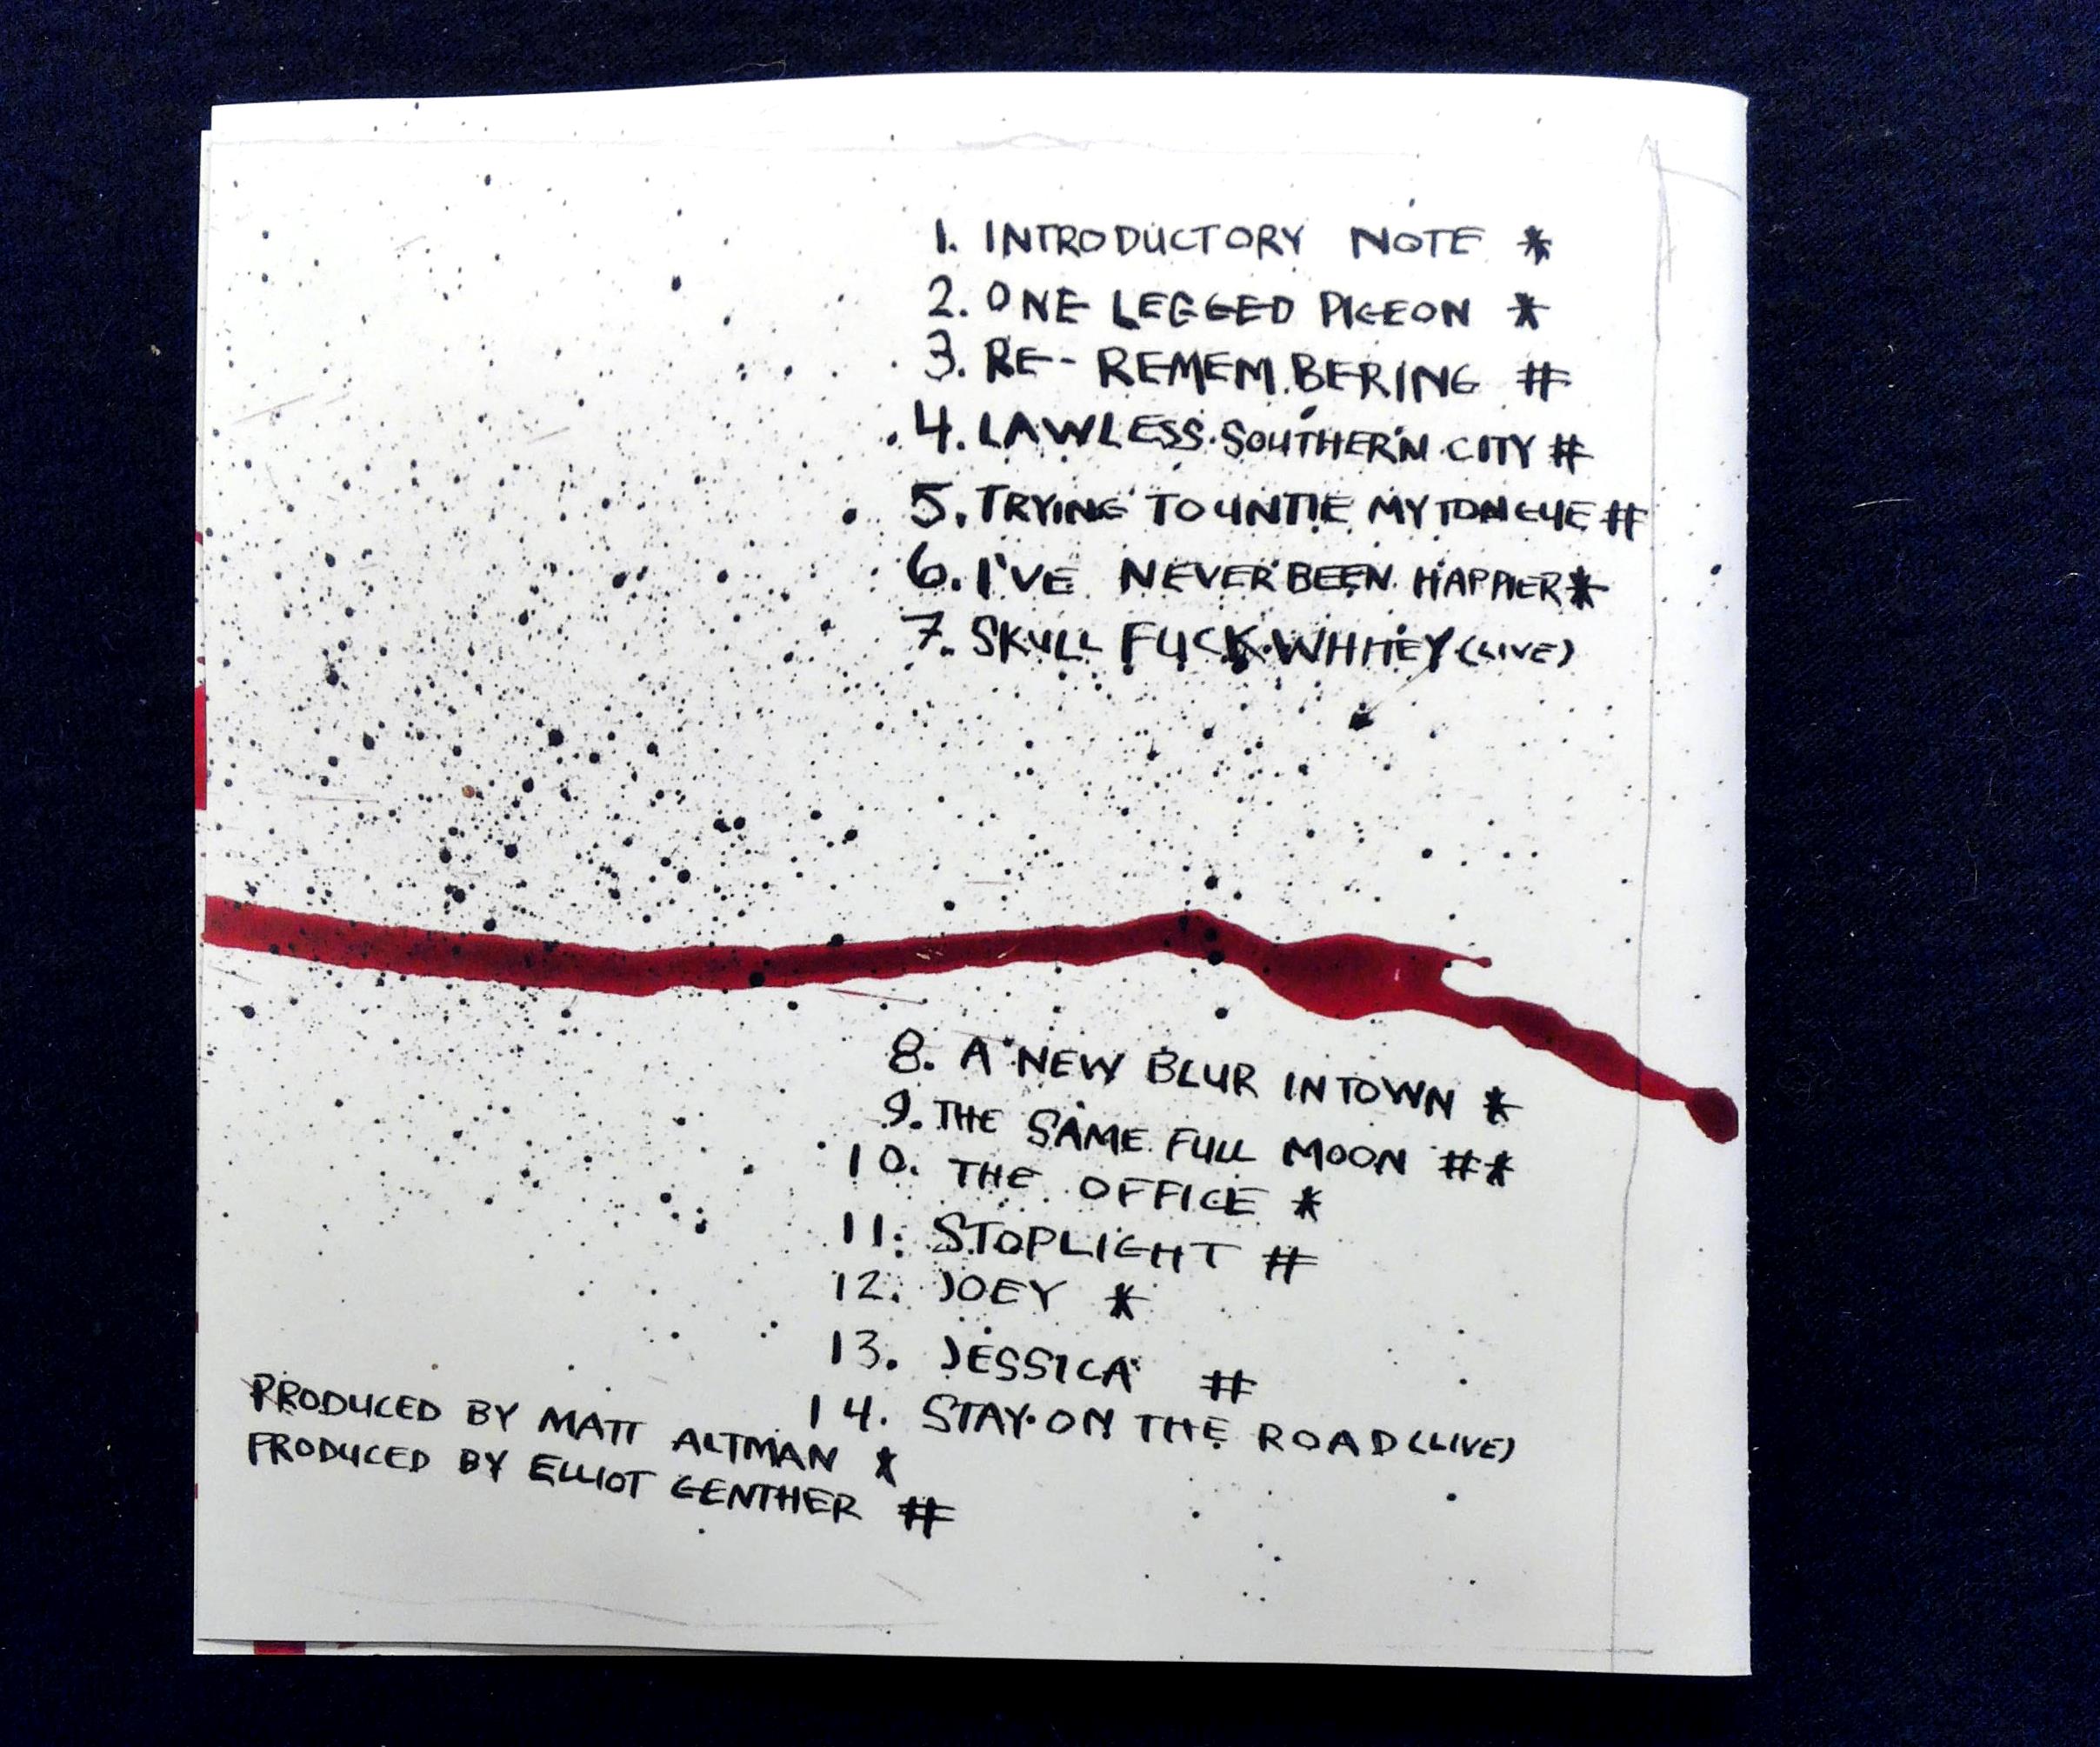 1. INTRODUCTORY NOTE *
2. ONE LEGGED PIGEON *
3. RE-REMEMBERING #
4. LAWLESS SOUTHERN CITY #
5. TRYING TO UNTIE MY TONGUE #
6. I'VE NEVER BEEN HAPPIER *
7. SKULL FUCK WHITEY (LIVE)
8. A NEW BLUR IN TOWN *
9. THE SAME FULL MOON # *
10. THE OFFICE *
11. STOPLIGHT #
12. JOEY *
13. JESSICA #
14. STAY ON THE ROAD (LIVE)
PRODUCED BY MATT ALTMAN *
PRODUCED BY ELLIOT GENTHER #